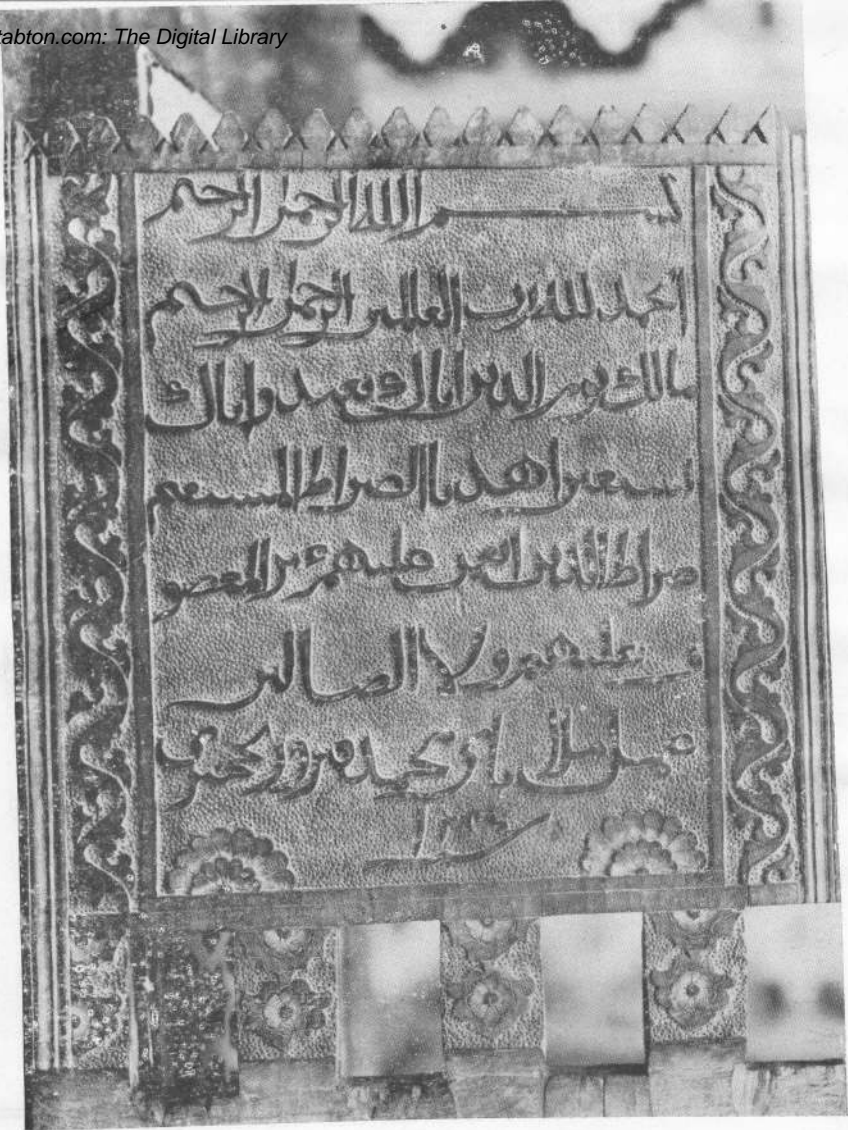 tabton.com: The Digital Library
بسم الله الرحمن الرحيم
الحمد لله رب العالمين الرحمن الرحيم
مالك يوم الدين اياك نعبد واياك
نستعين اهدنا الصراط المستقيم
صراط الذين انعمت عليهم غير المغضو
ب عليهم ولا الضالين
محمد
سنة